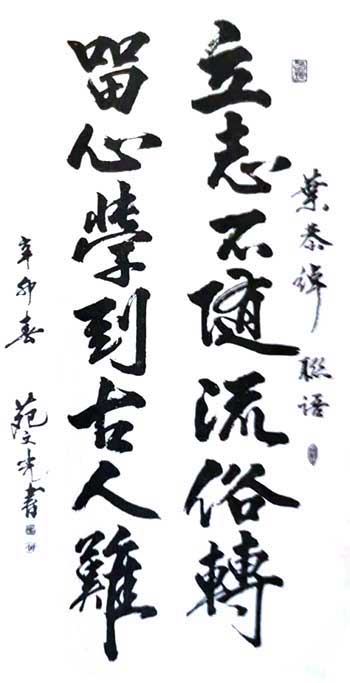 葉恭綽聯語
立志不随流俗轉
留心學到古人難
辛卯春 范文光書